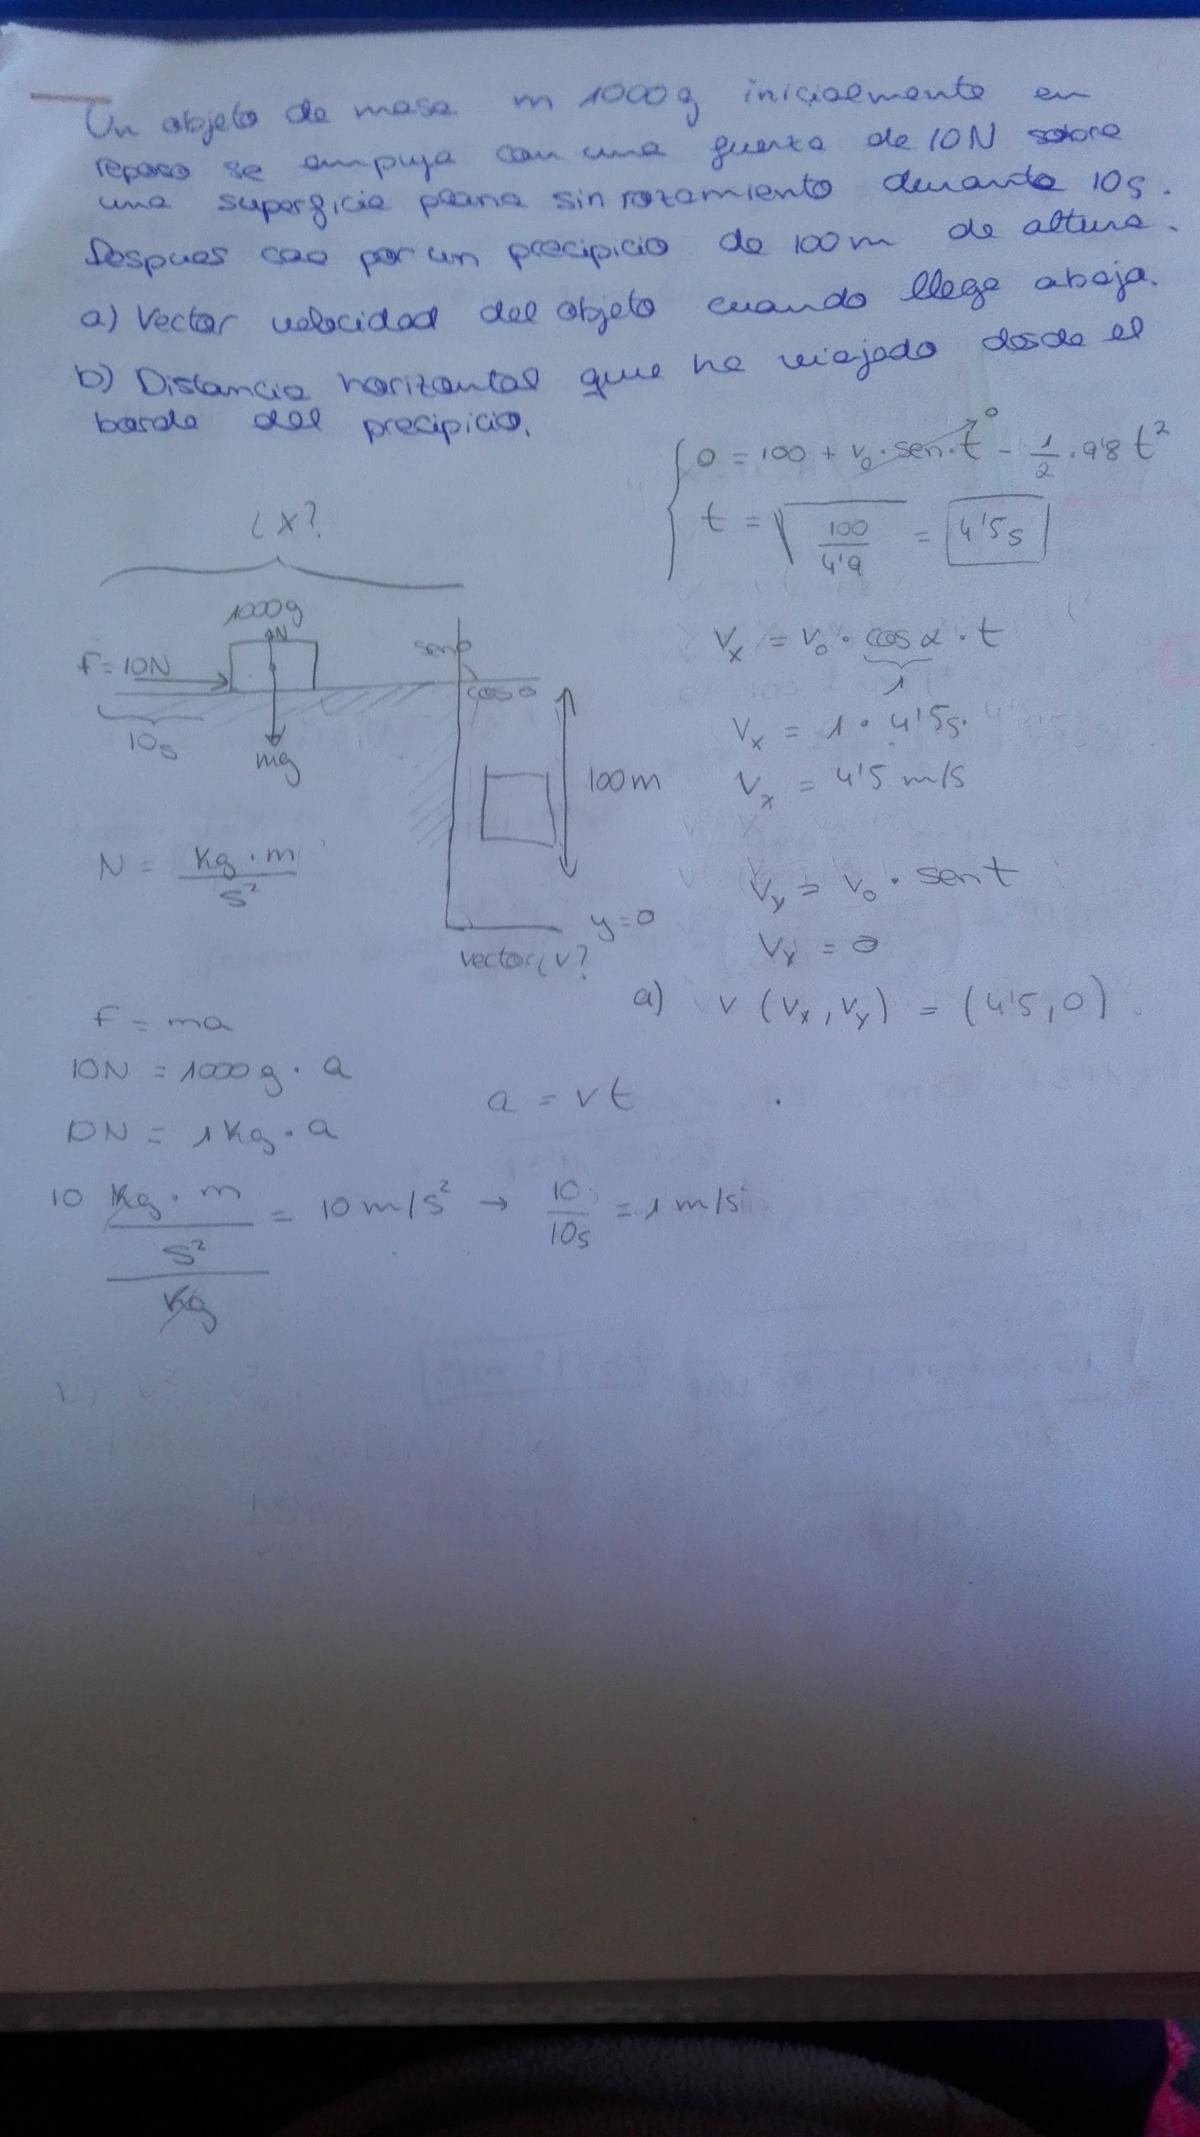 Un objeto de masa m 1000g inicialmente en
reposo se empuja con una fuerza de 10N sobre
una superficie plana sin rozamiento durante 10s.
Despues cae por un precipicio de 100m de altura.
a) Vector velocidad del objeto cuando llega abajo.
b) Distancia horizontal que ha viajado desde el
borde del precipicio.
0 = 100 + v₀ · sen · t → 0 - 1/2 · 9'8 t²
t = √(100/4'9) = 4'5s
¿x?
1000g
N
F = 10N
10s
mg
cos 0
100m
y=0
vector ¿v?
Vx = V₀ · cos α · t
1
Vx = 1 · 4'5s.
Vx = 4'5 m/s
Vy = V₀ · sen t
Vy = 0
a) v (Vx, Vy) = (4'5, 0)
N = Kg · m / s²
F = ma
10N = 1000g · a
10N = 1Kg · a
a = v t
10 Kg · m / s² / Kg = 10 m/s² → 10/10s = 1 m/s²